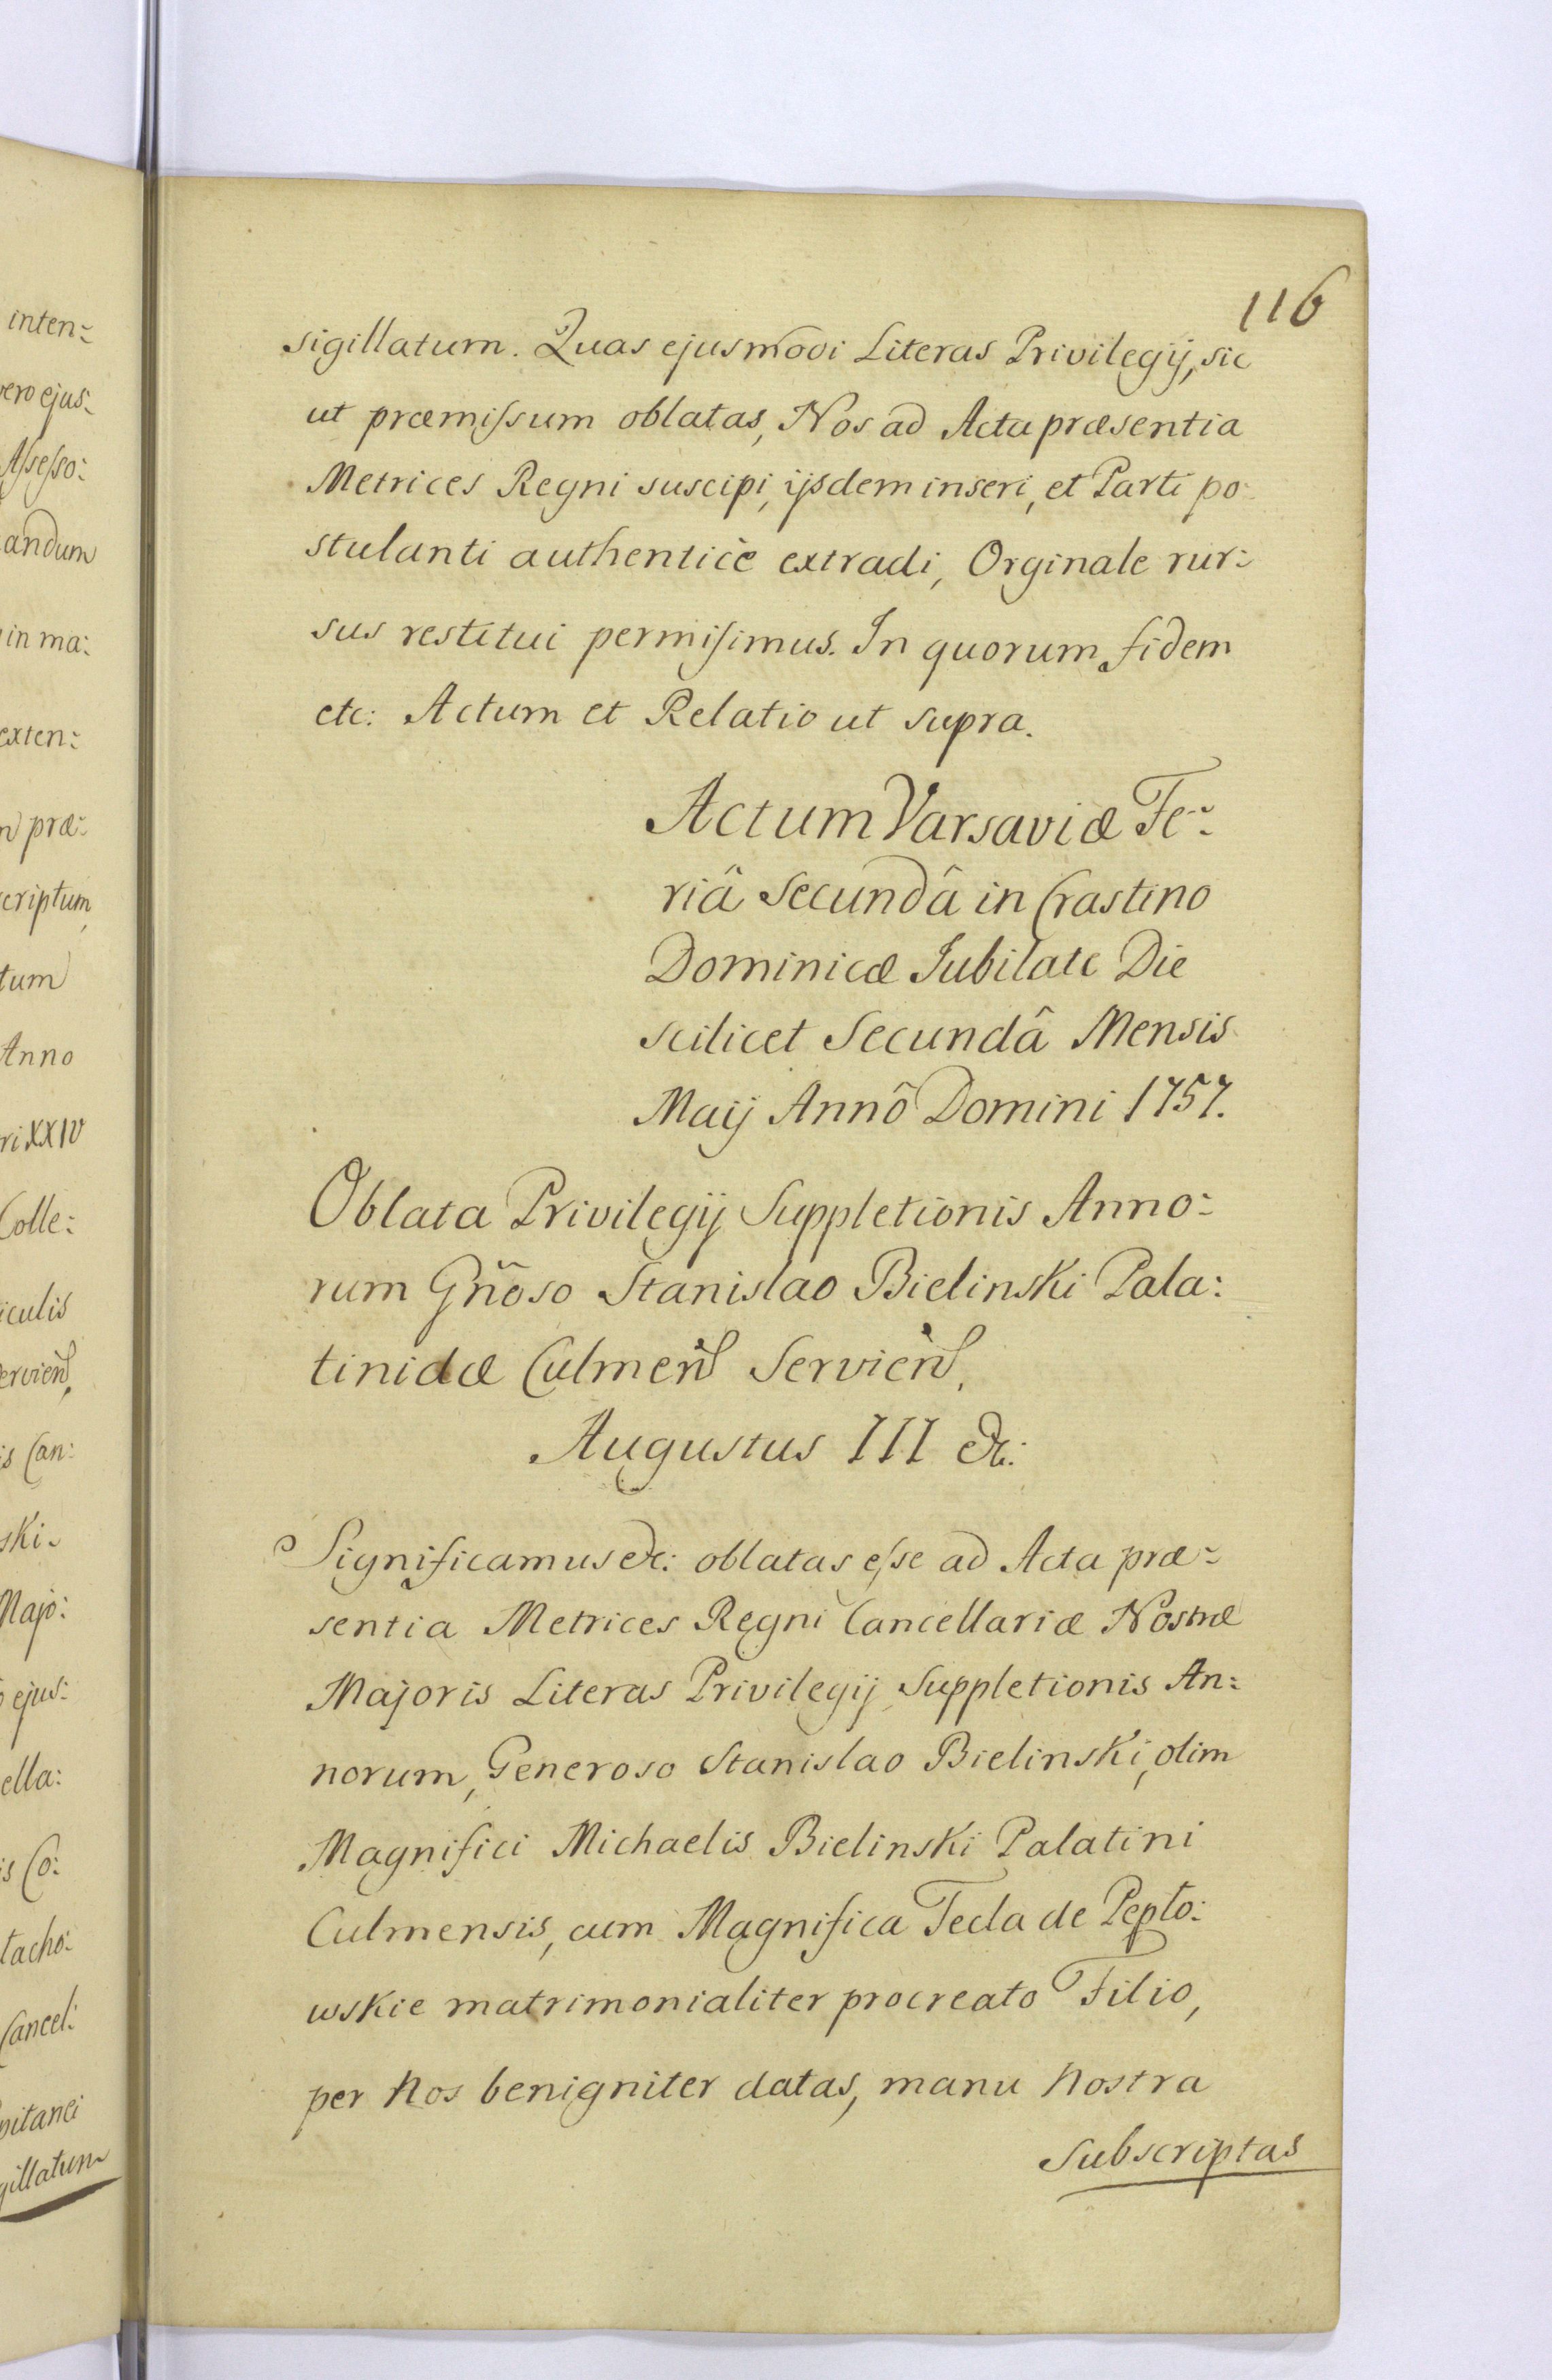 inten:
vero ejus:
Assesso:
andum
in ma:
exten:
præ:
scriptum,
tum
Anno
ri XXIV
Colle:
iculis
Servień,
is Can:
ski.
Majo:
ejus:
ella:
is Co:
tacho:
Cancel:
pitanei
gillatum
116
sigillatum. Quas ejusmodi Literas Privilegij, sic
ut præmissum oblatas, Nos ad Acta præsentia
Metrices Regni suscipi, ijsdem inseri, et Parti po:
stulanti authenticè extradi, Orginale rur:
sus restitui permisimus. In quorum fidem
etc: Actum et Relatio ut supra.
Actum Varsaviæ Fe:
riâ Secundâ in Crastino
Dominicæ Jubilate Die
scilicet Secundâ Mensis
Maij Annô Domini 1757.
Oblata Privilegij Suppletionis Anno:
rum Gñoso Stanislao Bielinski Pala:
tinidæ Culmeń Servień,
Augustus III &c:
Significamus &c: oblatas esse ad Acta præ:
sentia Metrices Regni Cancellariæ Nostræ
Majoris Literas Privilegij Suppletionis An:
norum, Generoso Stanislao Bielinski, olim
Magnifici Michaelis Bielinski Palatini
Culmensis, cum Magnifica Tecla de Pepło:
wskie matrimonialiter procreato Filio,
per Nos benigniter datas, manu Nostra
Subscriptas